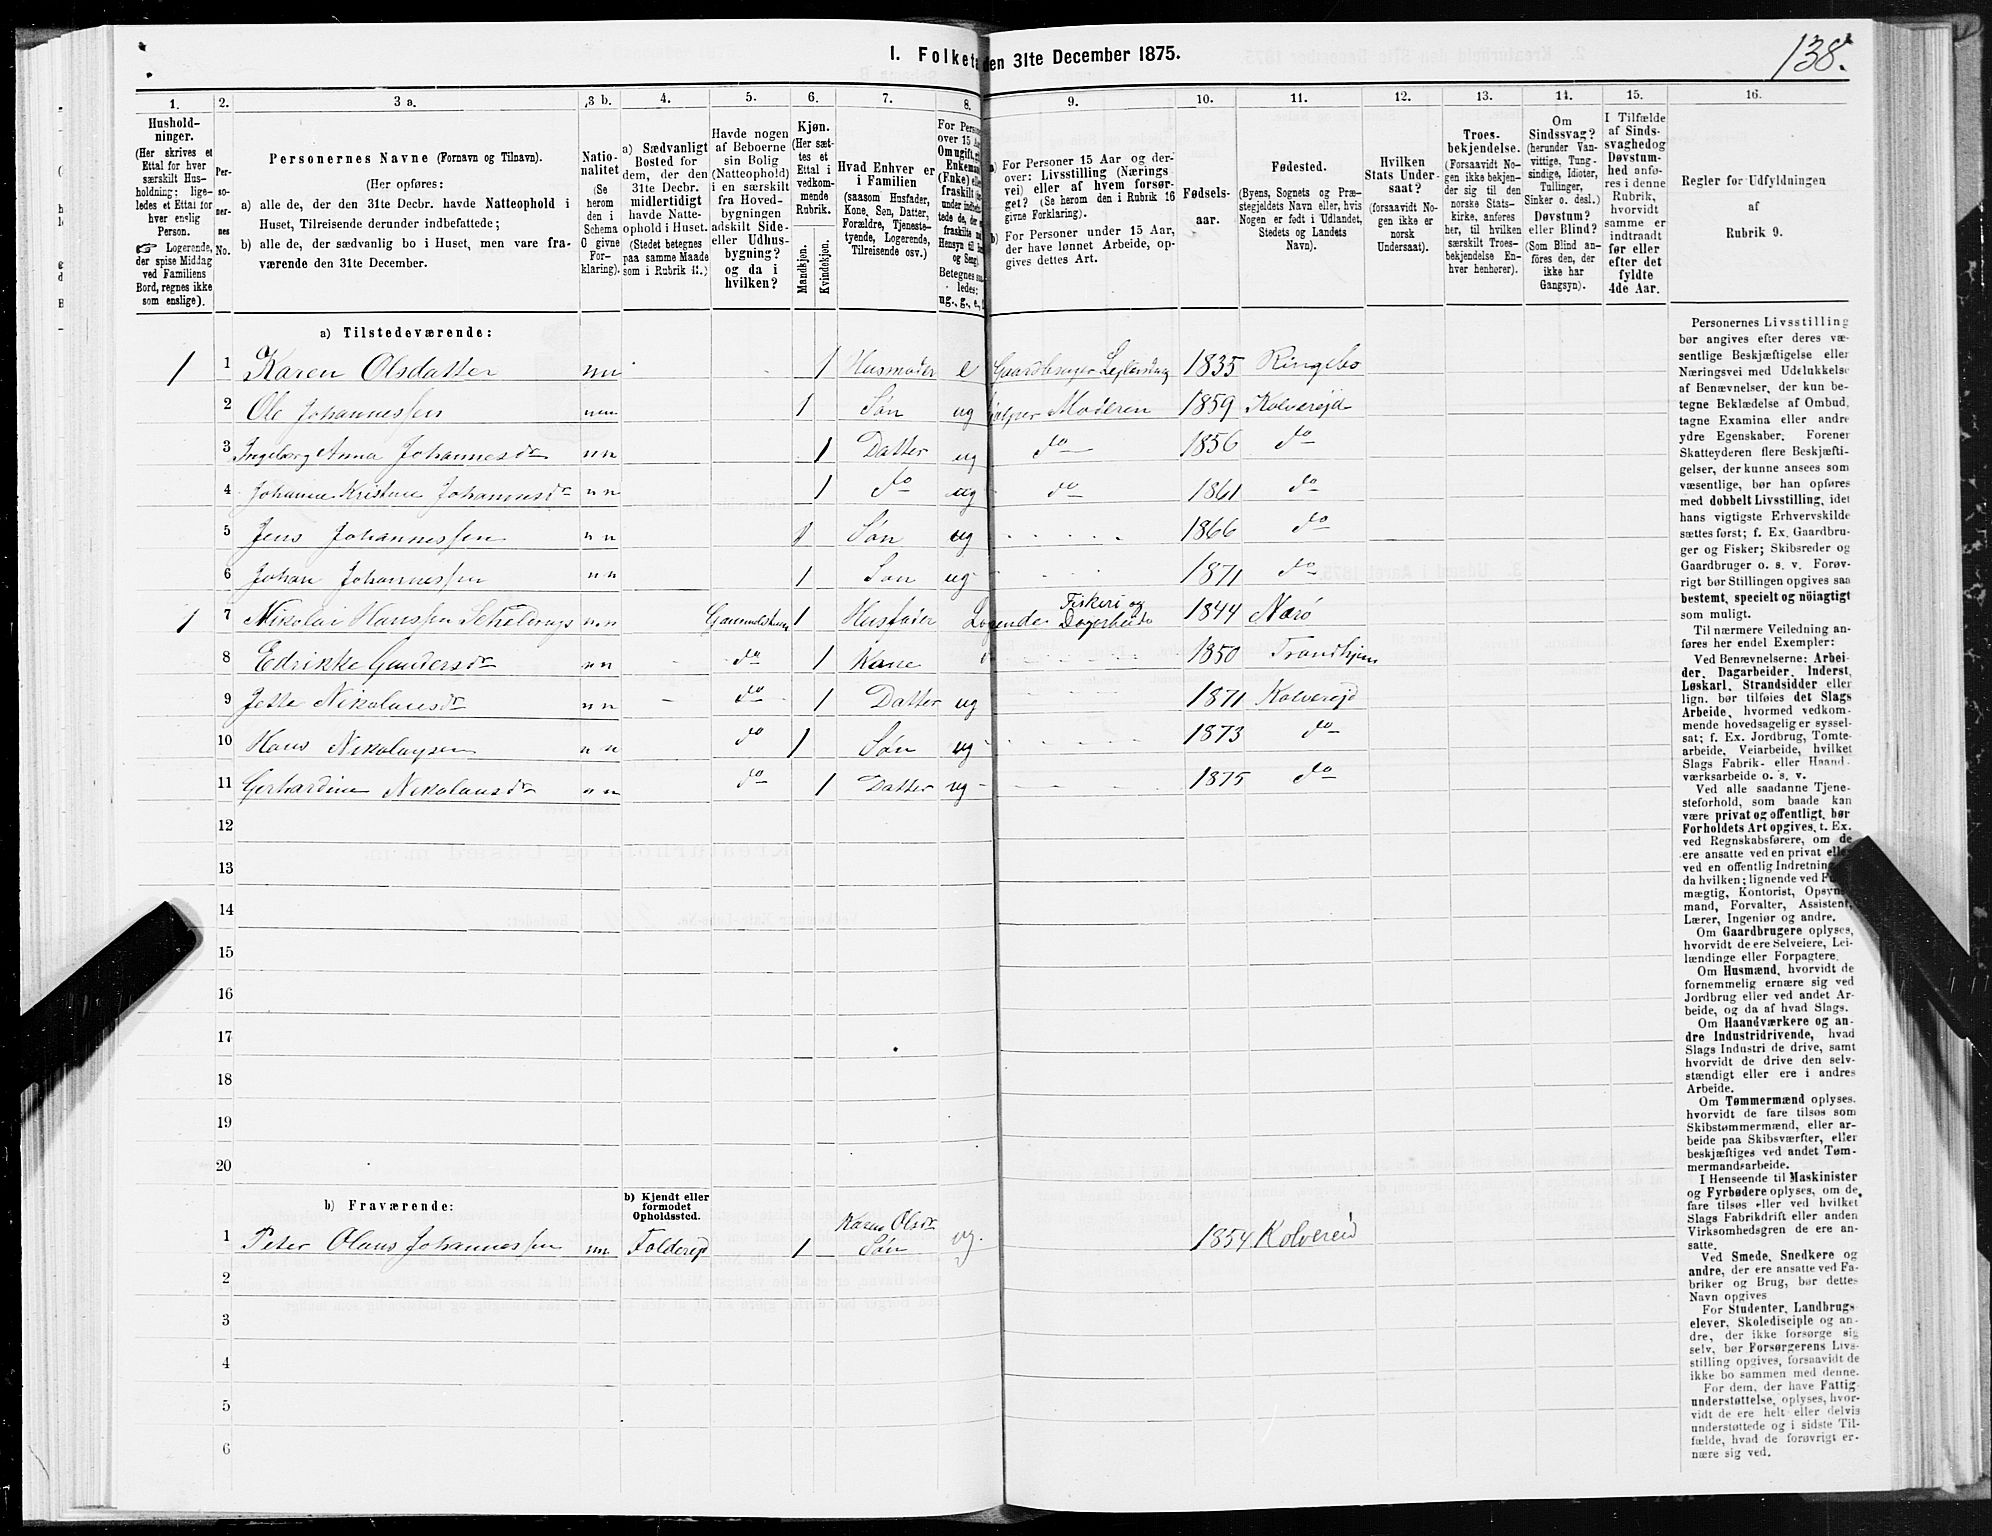 138.
I. Folketæ
den 31te December 1875.
1.
2.
3 a.
3 b.
4.
5.
6.
7.
8.
9.
10.
11.
12.
13.
14.
15.
16.
Hushold-
ninger.
(Her skrives et
Ettal for hver
særskilt Hus-
holdning; lige-
ledes et Ettal for
hver enslig
Person.
☞ Logerende,
der spise Middag
ved Familiens
Bord, regnes ikke
som enslige).
Per-
so-
ner-
nes
No.
Personernes Navne (Fornavn og Tilnavn).
(Her opføres:
a) alle de, der den 31te Decbr. havde Natteophold i
Huset, Tilreisende derunder indbefattede;
b) alle de, der sædvanlig bo i Huset, men vare fra-
værende den 31te December.
Natio-
nalitet
(Se
herom
den i
Schema
C givne
For-
klaring).
a) Sædvanligt
Bosted for
dem, der den
31te Decbr.
midlertidigt
havde Natte-
ophold i Huset.
(Stedet betegnes
paa samme Maade
som i Rubrik 11.)
Havde nogen
af Beboerne
sin Bolig
(Natteophold)
i en særskilt
fra Hoved-
bygningen
adskilt Side-
eller Udhus-
bygning?
og da i
hvilken?
Kjøn.
(Her sæt-
tes et
Ettal i
vedkom-
mende
Rubrik.
Mandkjøn.
Kvindekjøn.
Hvad Enhver er
i Familien
(saasom Husfader,
Kone, Søn, Datter,
Forældre, Tjeneste-
tyende, Logerende,
Tilreisende osv.)
For Perso
over 15 Aa
Om ugift, gi
Enkeman
(Enke) ell
fraskilt
under indb
tede de, der
fraskilte
Hensyn til
og Seng
Betegnes sa
ledes:
ug., g., e.,
a) For Personer 15 Aar og der-
over: Livsstilling (Nærings
vei) eller af hvem forsør-
get? (Se herom den i Rubrik 16
givne Forklaring).
b) For Personer under 15 Aar,
der have lønnet Arbeide, op-
gives dettes Art.
Fødsels-
aar.
Fødested.
(Byens, Sognets og Præ-
stegjeldets Navn eller, hvis
Nogen er født i Udlandet,
Stedets og Landets
Navn).
Hvilken
Stats Under-
saat?
(forsaavidt No-
gen ikke er
norsk
Undersaat).
Troes-
bekjendelse.
(Forsaavidt No-
gen ikke bekjen-
der sig til den
norske Stats-
kirke, anføres
her, til hvilken
særskilt Troes-
bekjendelse En-
hver henhører).
Om
Sindssvag?
(herunder Van-
vittige, Tung-
sindige, Idioter,
Tullinger,
Sinker o. desl.)
Døvstum?
eller Blind?
(Som Blind an-
føres den, der
ikke har
Gangsyn).
I Tilfælde
af Sinds-
svaghed og
Døvstum-
hed anfø-
res i denne
Rubrik,
hvorvidt
samme er
indtraadt
før eller
efter det
fyldte
4de Aar.
Regler for Udfyldningen
af
Rubrik 9.
a) Tilstedeværende:
1 1 Karen Olsdatter nn 1 Husmoder e Gaardbruger 1835 Ringebo
2 Ole Johannessen nn 1 Søn ug hjælper Moderen 1859 Kolvereid
3 Ingeborg Anna Johannesdr nn 1 Datter ug do 1856 do
4 Johanna Kristine Johannesdr nn 1 do ug do 1861 do
5 Jens Johannessen nn 1 Søn ug 1866 do
6 Johan Johannessen nn 1 Søn ug 1871 do
1 7 Nikolai Hanssen nn 1 Husfader Logerende Fiskeri og Dagarbeide 1844 Nærø
8 Edrikke Gundersdr nn do 1 Kone 1850 Trondhjem
9 Jette Nikolaisdr nn do 1 Datter ug 1871 Kolvereid
10 Hans Nikolaysen nn do 1 Søn ug 1873 do
11 Gerhardine Nikolaisdr nn do 1 Datter ug 1875 do
12
13
14
15
16
17
18
19
20
b) Fraværende:
b) Kjendt eller
formodet
Opholdssted.
Karen Olsdr
1 Peter Olaus Johannessen nn Foldereid 1 Søn ug. 1854 Kolvereid
2
3
4
5
6
Personernes Livsstilling
bør angives efter deres væ-
sentlige Beskjæftigelse eller
Næringsvei med Udelukkelse
af Benævnelser, der kun be-
tegne Beklædelse af Ombud,
tagne Examina eller andre
ydre Egenskaber. Forener
Skatteyderen flere Beskjæfti-
gelser, der kunne ansees som
væsentlige, bør han opføres
med dobbelt Livsstilling, idet
hans vigtigste Erhvervskilde
sættes først; f. Ex. Gaardbru-
ger og Fisker; Skibsreder og
Gaardbruger o. s. v. Forøv-
rigt bør Stillingen opgives saa
bestemt, specielt og nøiagtigt
som muligt.
Til nærmere Veiledning an-
føres her endel Exempler:
Ved Benævnelserne: Arbei-
der, Dagarbeider, Inderst,
Løskarl, Strandsidder eller
lign. bør tilføies det Slags
Arbeide, hvormed vedkom-
mende hovedsagelig er syssel-
sat; f. Ex. Jordbrug, Tomte-
arbeide, Veiarbeide, hvilket
Slags Fabrik- eller Haand-
værksarbeide o. s. v.
Ved alle saadanne Tjene-
steforhold, som baade kan
være privat og offentligt, bør
Forholdets Art opgives, t. Ex.
ved Regnskabsførere, om de
ere ansatte ved en privat eller
ved en offentlig Indretning
da hvilken; lignende ved Fuld-
mægtig, Kontorist, Opsyns-
mand, Forvalter, Assistent,
Lærer, Ingeniør og andre.
Om Gaardbrugere oplyses,
hvorvidt de ere Selveiere, Lei-
lændinge eller Forpagtere.
Om Husmænd, hvorvidt de
fornemmelig ernære sig ved
Jordbrug eller ved andet Ar-
beide, og da af hvad Slags.
Om Haandværkere og an-
dre Industridrivende, hvad
Slags Industri de drive, samt
hvorvidt de drive den selv-
stændigt eller ere i andres
Arbeide.
Om Tømmermænd oplyses,
hvorvidt de fare tilsøs som
Skibstømmermænd, eller ar-
beide paa Skibsværfter, eller
beskjæftiges ved andet Tøm-
mermandsarbeide.
I Henseende til Maskinister
og Fyrbødere oplyses, om de
fare tilsøs eller ved hvilket
Slags Fabrikdrift eller anden
Virksomhedsgren de ere an-
satte.
Ved Smede, Snedkere og
andre, der ere ansatte ved Fa-
briker og Brug, bør dettes
Navn opgives
For Studenter, Landbrugs
elever, Skoledisciple og an-
dre, der ikke forsørge sig
selv, bør Forsørgerens Livs-
stilling opgives, forsaavidt de
ikke bo sammen med denne.
For dem, der have Fattig-
understøttelse, oplyses, hvor-
vidt de ere helt eller delvis
understøttede og i sidste Til-
fælde, hvad de forøvrigt er-
nære sig ved.